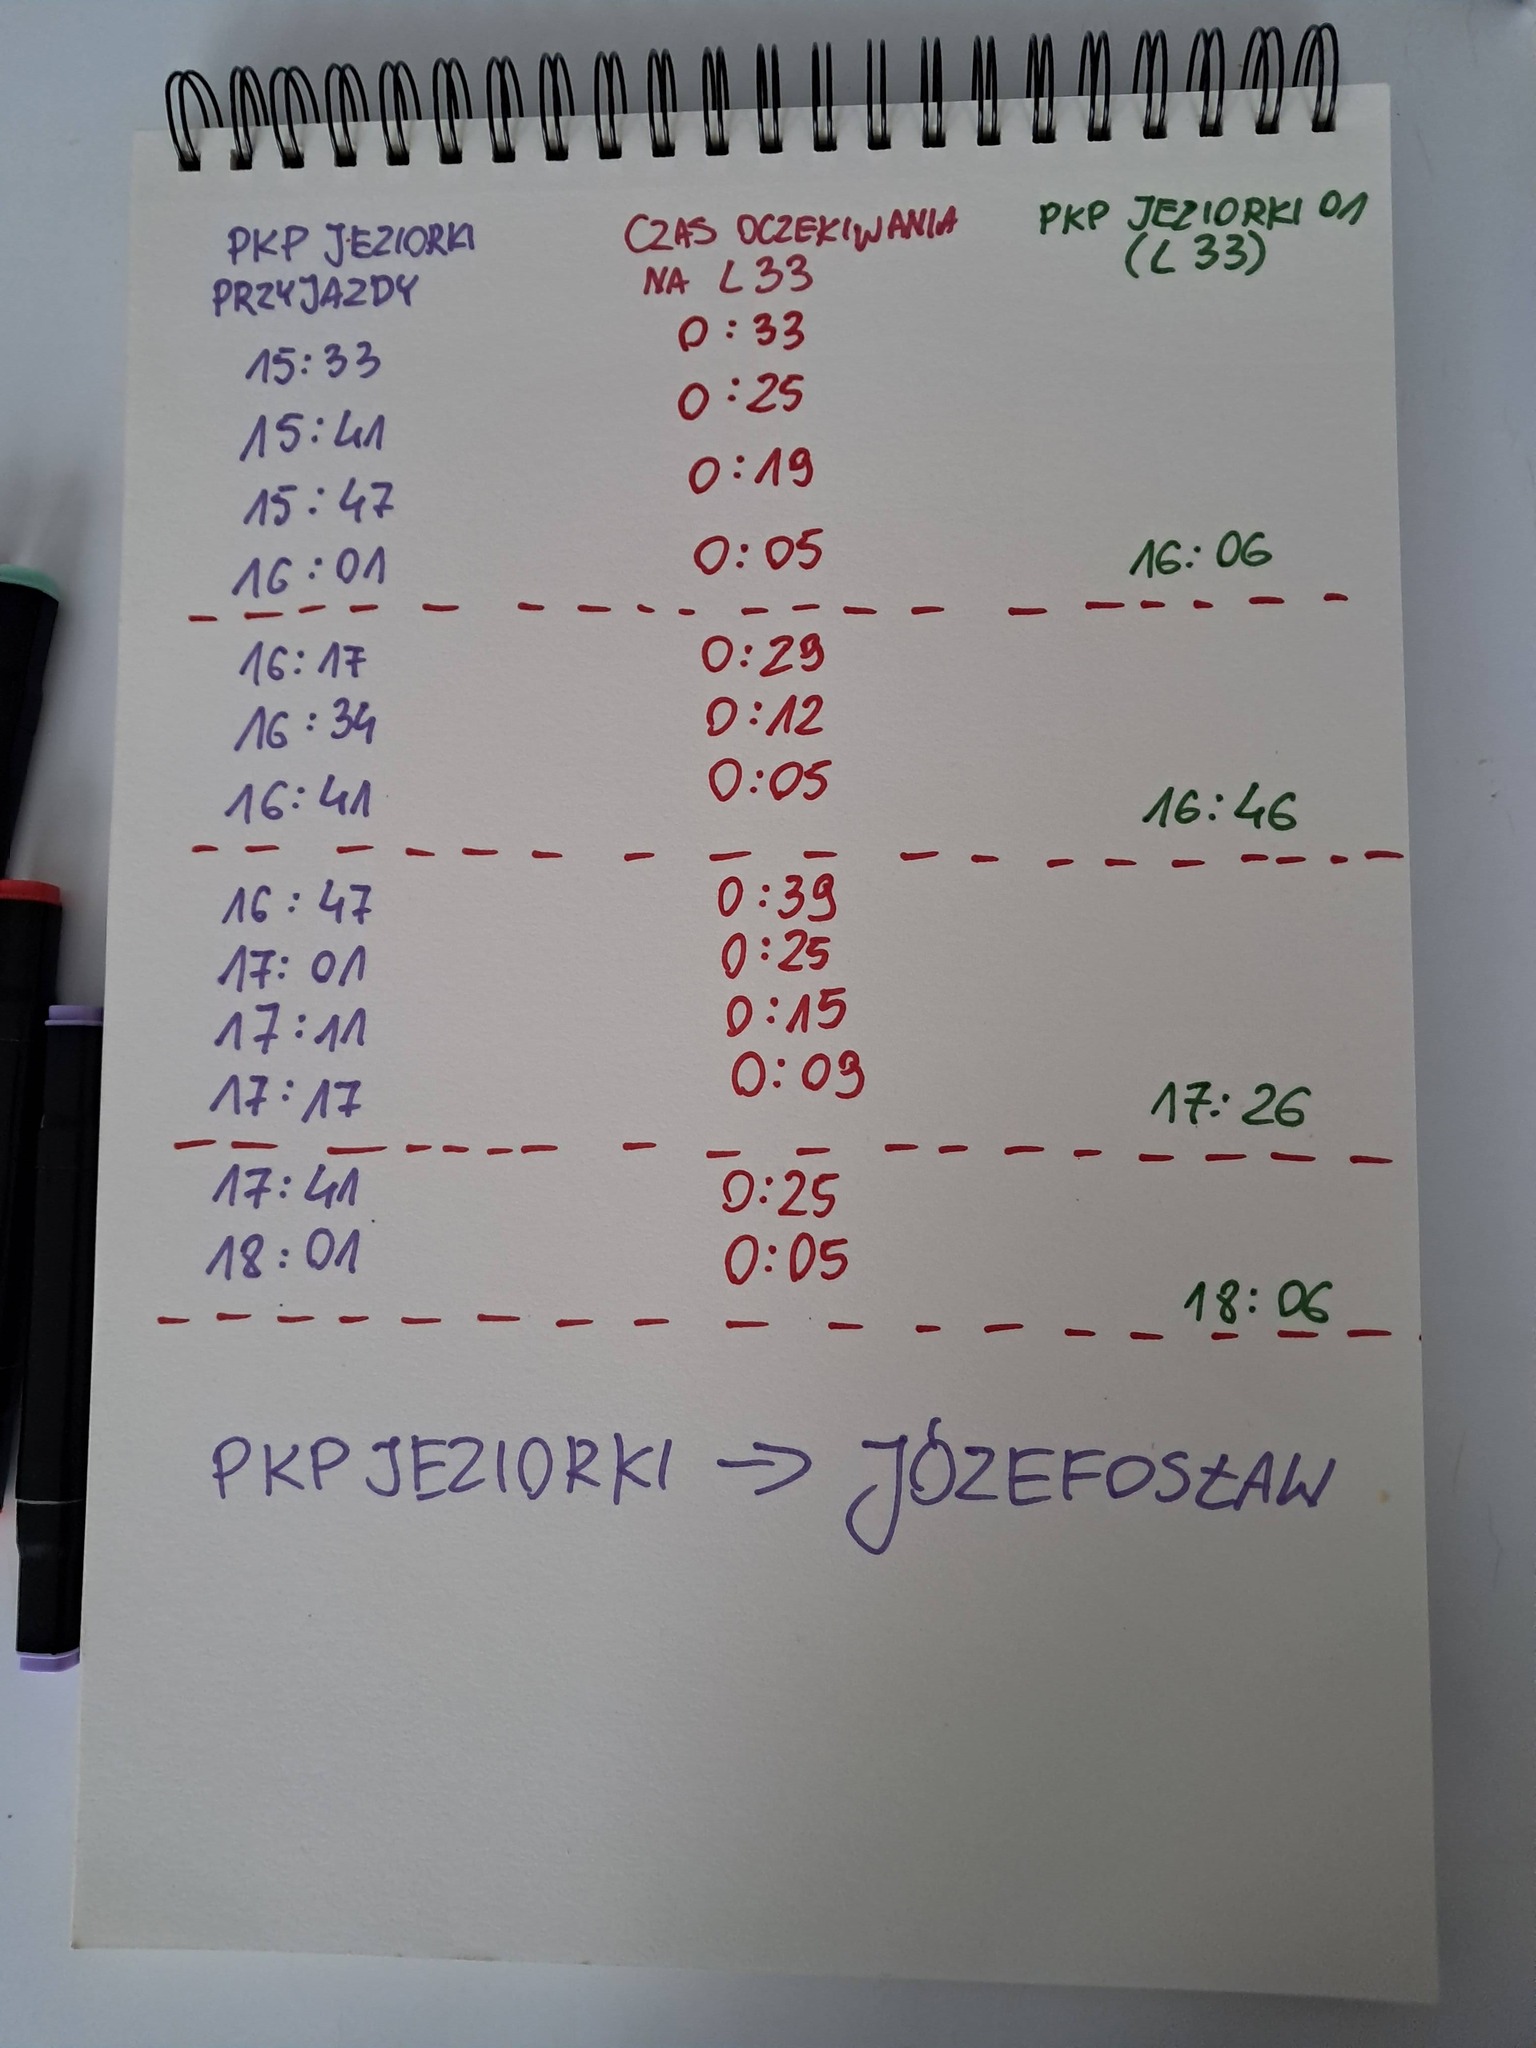 PKP JEZIORKI PRZYJAZDY
CZAS OCZEKIWANIA NA L33
PKP JEZIORKI 01 (L 33)
15:33 0:33
15:41 0:25
15:47 0:19
16:01 0:05 16:06
16:17 0:29
16:34 0:12
16:41 0:05 16:46
16:47 0:39
17:01 0:25
17:11 0:15
17:17 0:09 17:26
17:41 0:25
18:01 0:05 18:06
PKP JEZIORKI → JÓZEFOSŁAW